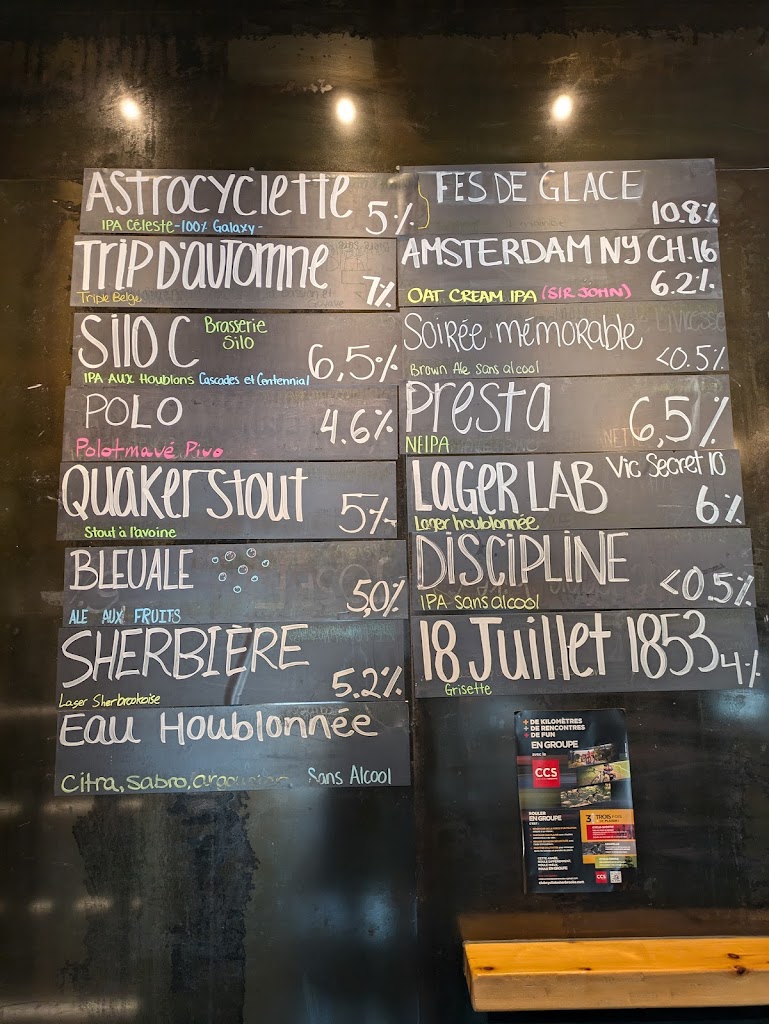 ASTROCYCLETTE 5%
IPA Céleste - 100% Galaxy -
TRIP D'AUTOMNE 7%
Triple Belge
SILO C Brasserie Silo 6,5%
IPA AUX Houblons Cascades et Centennial
POLO 4.6%
Polotmavé Pivo
QUAKER STOUT 5%
Stout à l'avoine
BLEUALE 5,0%
ALE AUX FRUITS
SHERBIÈRE 5.2%
Lager Sherbrookoise
EAU HOUBLONNÉE
Citra, Sabro, Sans Alcool
FES DE GLACE 10.8%
AMSTERDAM NY CH.16 6.2%
OAT CREAM IPA (SIR JOHN)
SOIRÉE MÉMORABLE <0.5%
Brown Ale sans alcool
Presta 6,5%
NEIPA
LAGER LAB Vic Secret 10 6%
Lager houblonnée
DISCIPLINE <0.5%
IPA sans alcool
18 Juillet 1853 4%
Grisette
+ DE KILOMÈTRES
+ DE RENCONTRES
+ DE FUN
EN GROUPE
AVEC LE
CCS
ROULER
EN GROUPE
C'EST :
3 TROIS
CCS